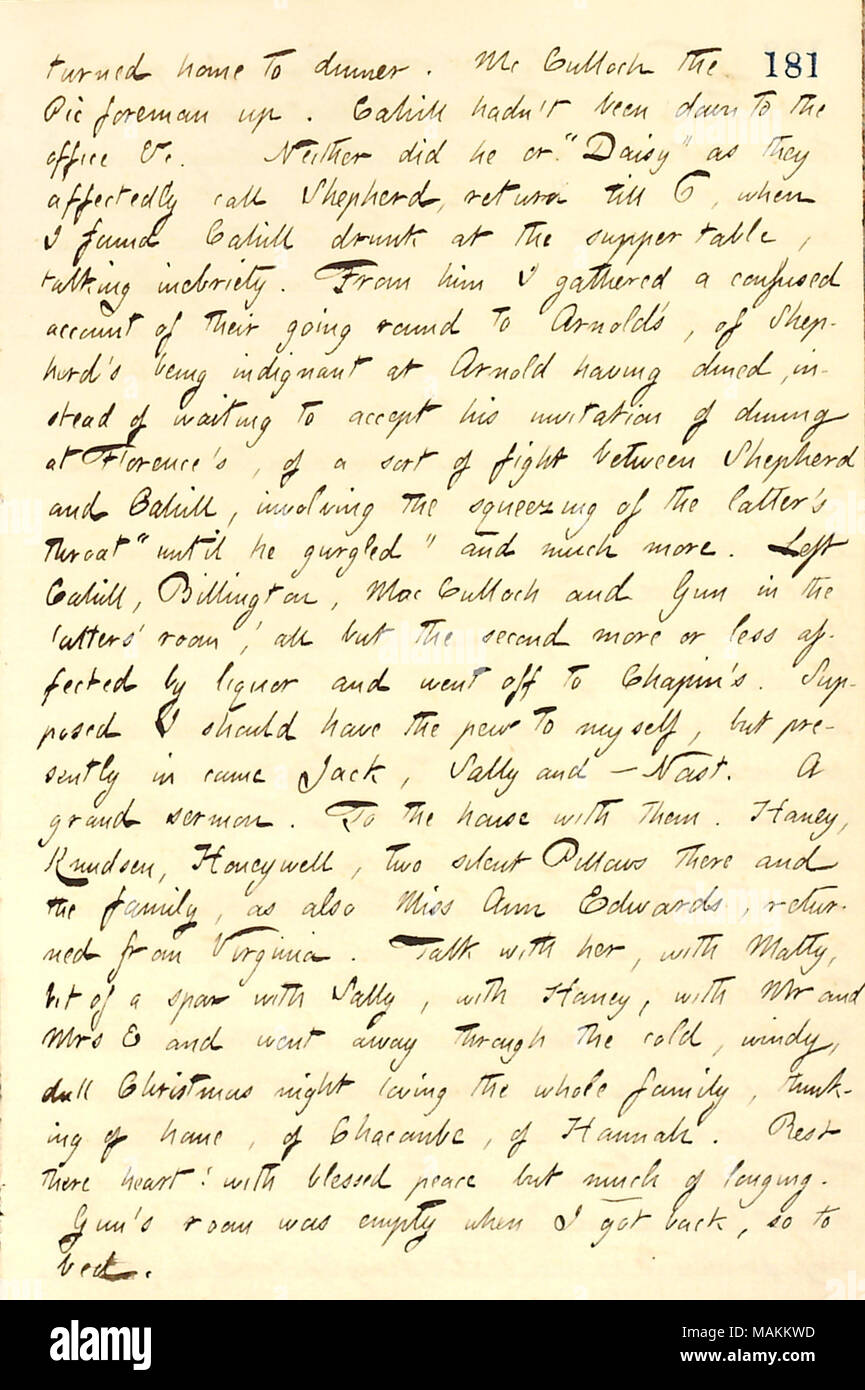 181
turned home to dinner. Mc Culloch the
Pic foreman up. Cahill hadn't been down to the
office &c. Neither did he or "Daisy" as they
affectedly call Shepherd, return till 6, when
I found Cahill drunk at the supper table,
talking inebriety. From him I gathered a confused
account of their going round to Arnold's, of Shep-
herd's being indignant at Arnold having dined, in-
stead of waiting to accept his invitation of dining
at Florence's, of a sort of fight between Shepherd
and Cahill, involving the squeezing of the latter's
throat "until he gurgled" and much more. Left
Cahill, Billington, Mac Culloch and Gun in the
latters' room, all but the second more or less af-
fected by liquor and went off to Chapin's. Sup-
posed I should have the pew to myself, but pre-
sently in came Jack, Sally and — Nast. A
grand sermon. To the house with them. Haney,
Knudsen, Honeywell, two silent Pillows there and
the family, as also Miss Ann Edwards, retur-
ned from Virginia. Talk with her, with Matty,
bit of a spar with Sally, with Haney, with Mr and
Mrs E and went away through the cold, windy,
dull Christmas night loving the whole family, think-
ing of home, of Chacombe, of Hannah. Rest
there heart! with blessed peace but much of longing.
Gun's room was empty when I got back, so to
bed.
alamy
Image ID: MAKKWD
www.alamy.com